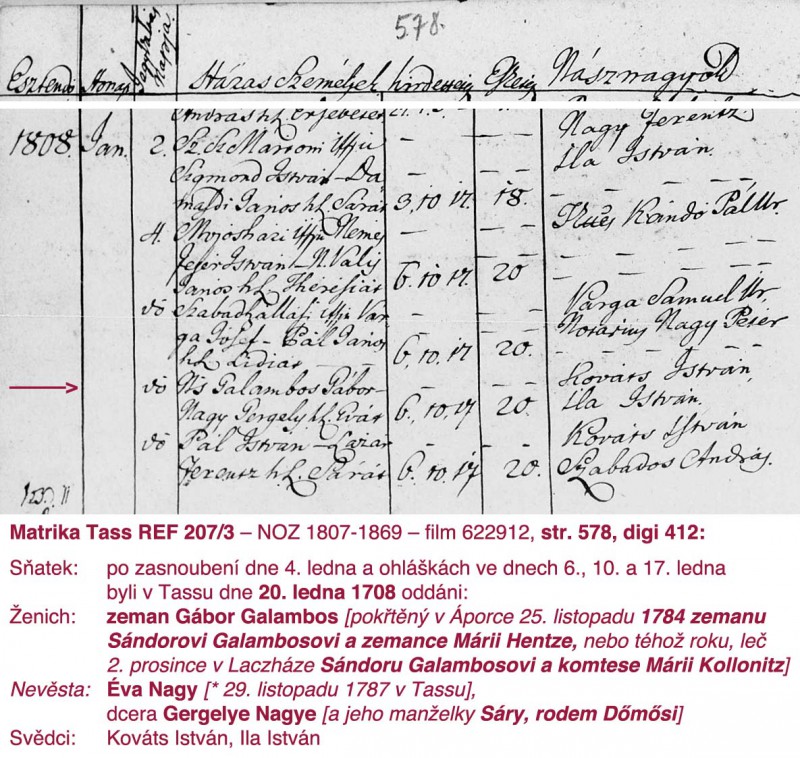 578.
Esztendő Hónap Házas Személyek hirdetteig Esketeig Násznagyok
András h.l. Ersebetet
1808. Jan. 2. Sz. Sz. Mártoni Ifjú — — Nagy Ferentz.
Sigmond István — Da- — — Ila István.
majdi János h.l. Sárát 3, 10 17. 18.
4. Mojosházi Ifjú Nemes — — Kándó Pál Ur.
Fejér István — N. Valis — —
János h.l. Theresiát 6. 10. 17. 20
dō Szabadszállási Ifjú Var- — — Varga Samuel Ur.
ga Josef — Pál János — — Notarius Nagy Péter
h.l. Lidiát — 6, 10, 17 20.
dō Galambos Gábor — — — Kováts István,
Nagy Gergely h.l. Évát 6, 10, 17 20. Ila István.
dō Pál István — Lázár — — Kováts István
Ferentz h.l. Sárát 6. 10. 17 20. Szabados András.
Matrika Tass REF 207/3 – NOZ 1807-1869 – film 622912, str. 578, digi 412:
Sňatek: po zasnoubení dne 4. ledna a ohláškách ve dnech 6., 10. a 17. ledna
byli v Tassu dne 20. ledna 1708 oddáni:
Ženich: zeman Gábor Galambos [pokřtěný v Áporce 25. listopadu 1784 zemanu
Sándorovi Galambosovi a zemance Márii Hentze, nebo téhož roku, leč
2. prosince v Laczháze Sándoru Galambosovi a komtese Márii Kollonitz]
Nevěsta: Éva Nagy [* 29. listopadu 1787 v Tassu],
dcera Gergelye Nagye [a jeho manželky Sáry, rodem Dőmősi]
Svědci: Kováts István, Ila István